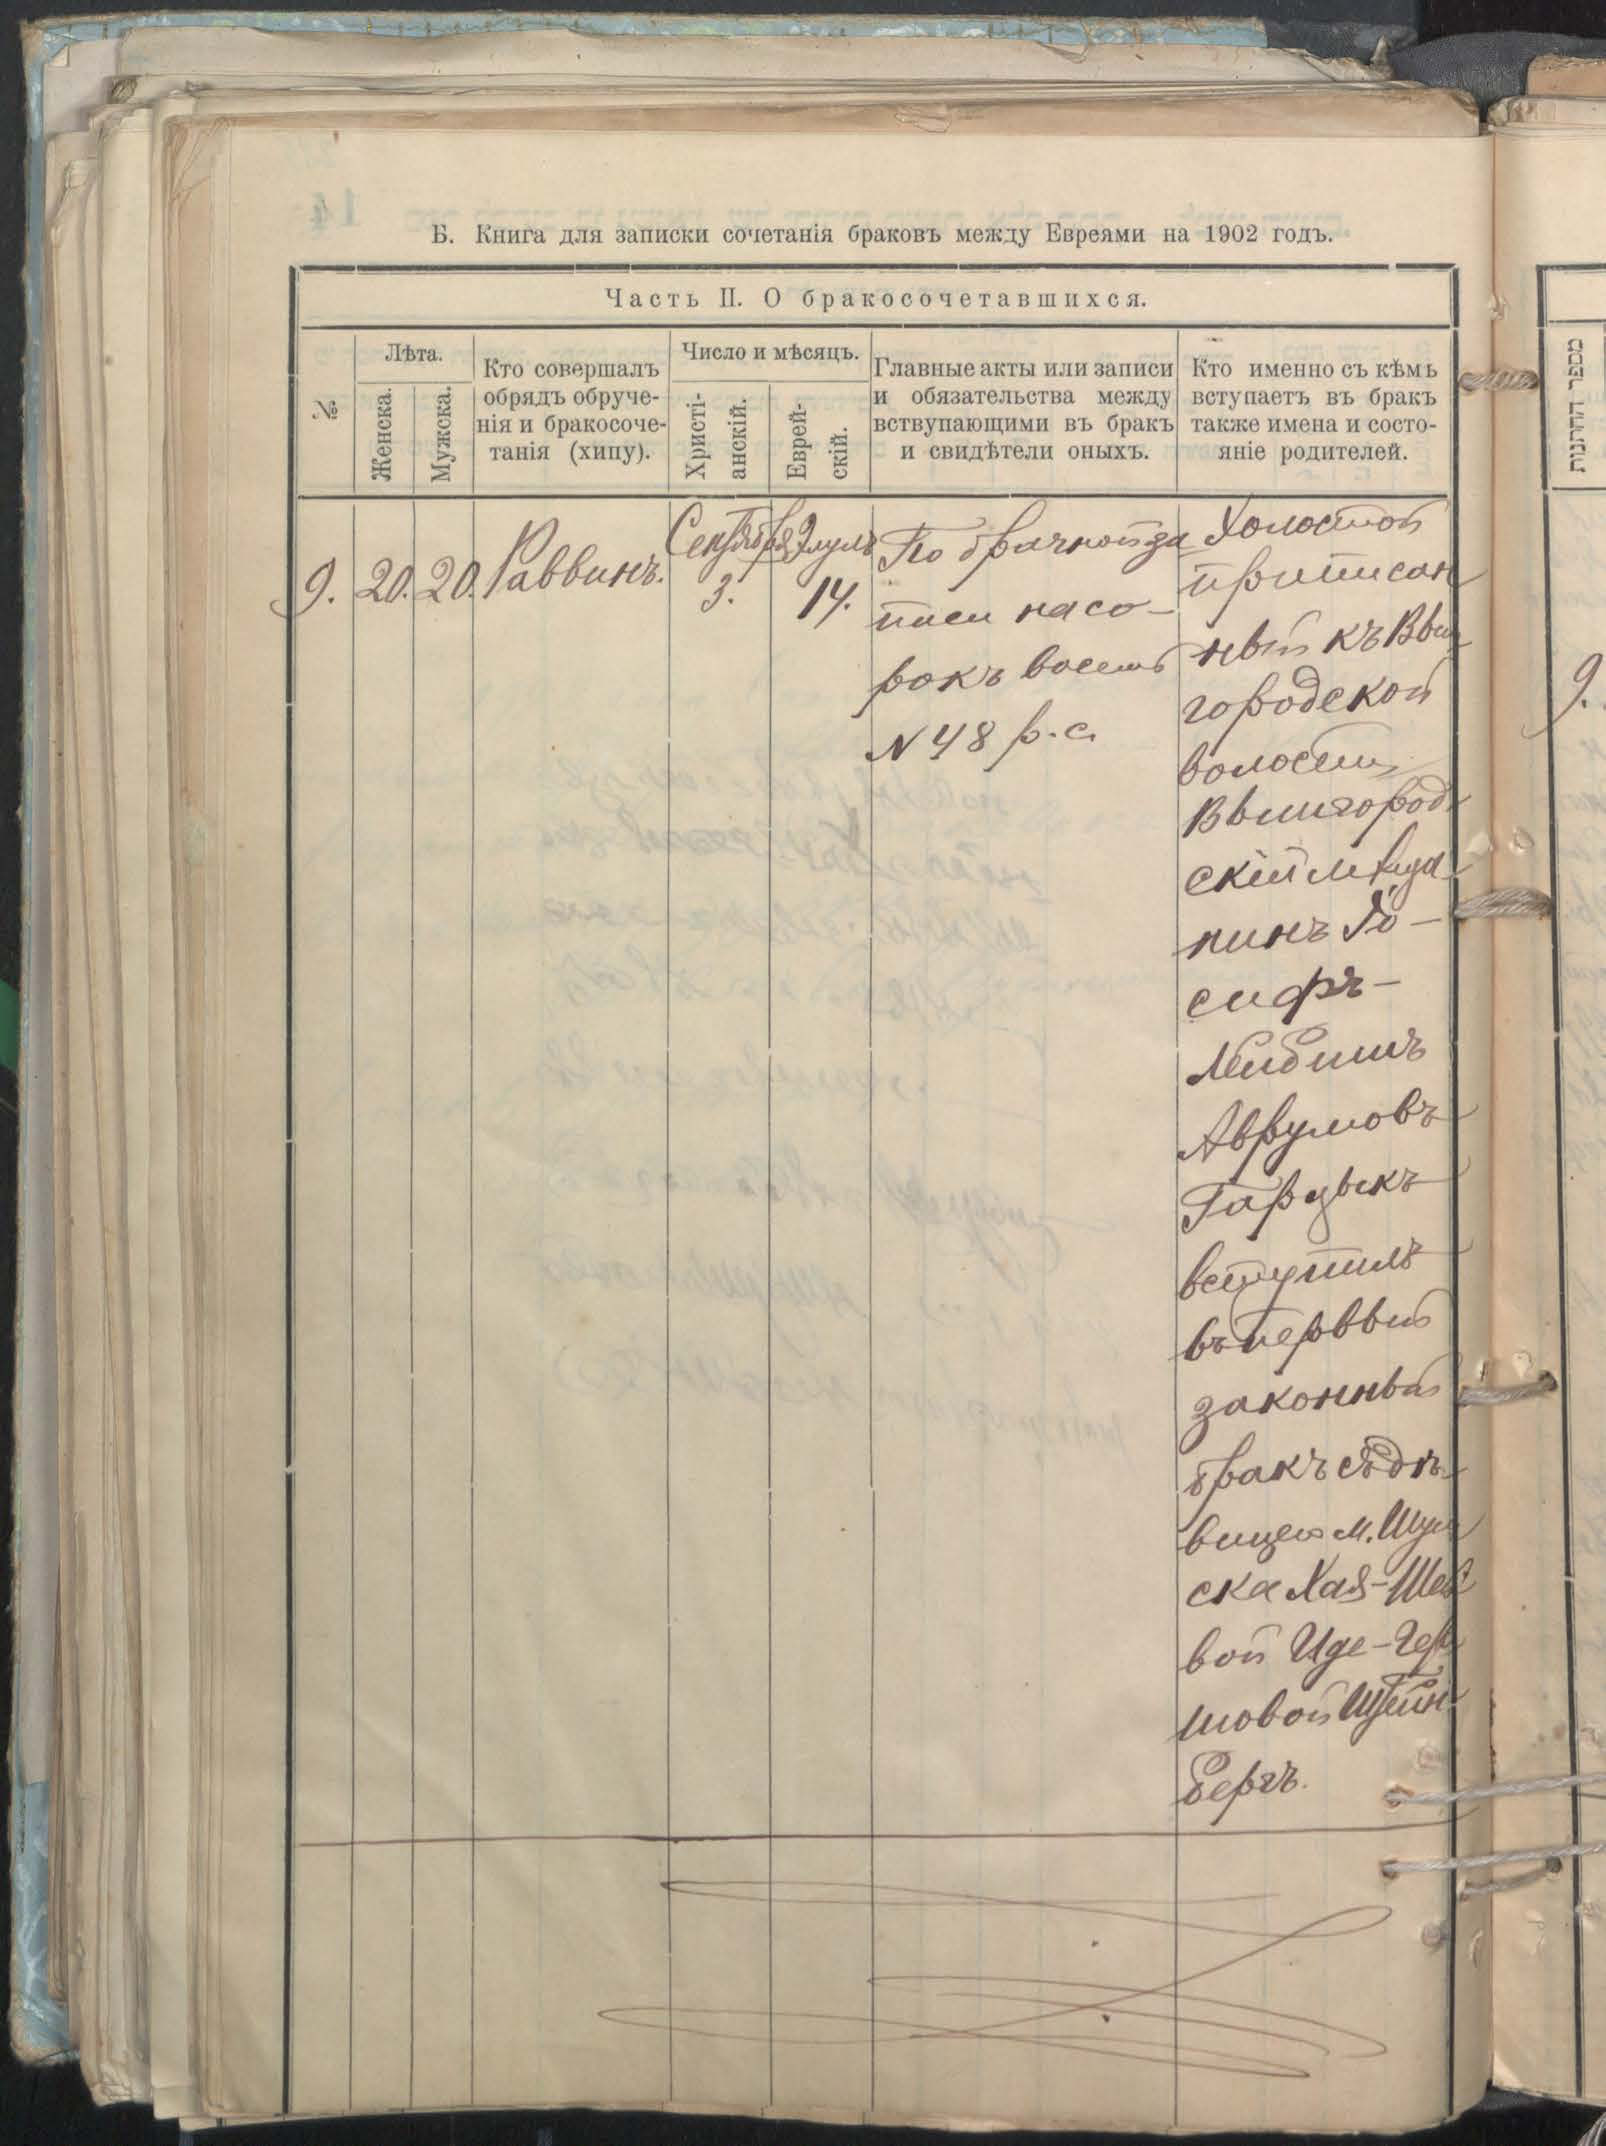 Б. Книга для записки сочетанія браковъ между Евреями на 1902 годъ.
Часть II. О бракосочетавшихся.
№
Лѣта.
Женска.
Мужска.
Кто совершалъ
обрядъ обруче-
нія и бракосоче-
танія (хипу).
Число и мѣсяцъ.
Христі-
анскій.
Еврей-
скій.
Главные акты или записи
и обязательства между
вствупающими въ бракъ
и свидѣтели оныхъ.
Кто именно съ кѣмъ
вступаетъ въ бракъ
также имена и состо-
яніе родителей.
9.
20.
20.
Раввинъ.
Сентября
3.
Элулъ
14.
По брачной за
писи на со-
рокъ восемь
N 48 р.с.
Холостой
приписан
ный къ Выш
городской
волости
Вышгород
скій мѣща
нинъ Іо-
сифъ-
Лейбишъ
Аврумовъ
Гарцыкъ
вступилъ
въ первый
законный
бракъ съ дѣ
вицею м. Шум
ска Хая-Шей
вой Иде-Гер
шовой Штейн
бергъ.
מספר החתונות
9.